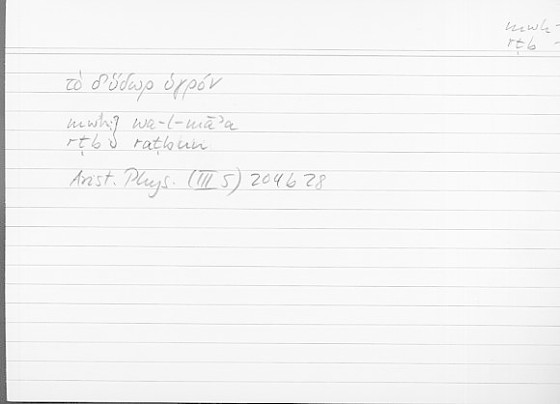 mwh-
rṭb -
τὸ δ' ὕδωρ ὑγρόν
mwh: wa-l-māʾa
rṭb raṭbun
Arist. Phys. (III 5) 204 b 28